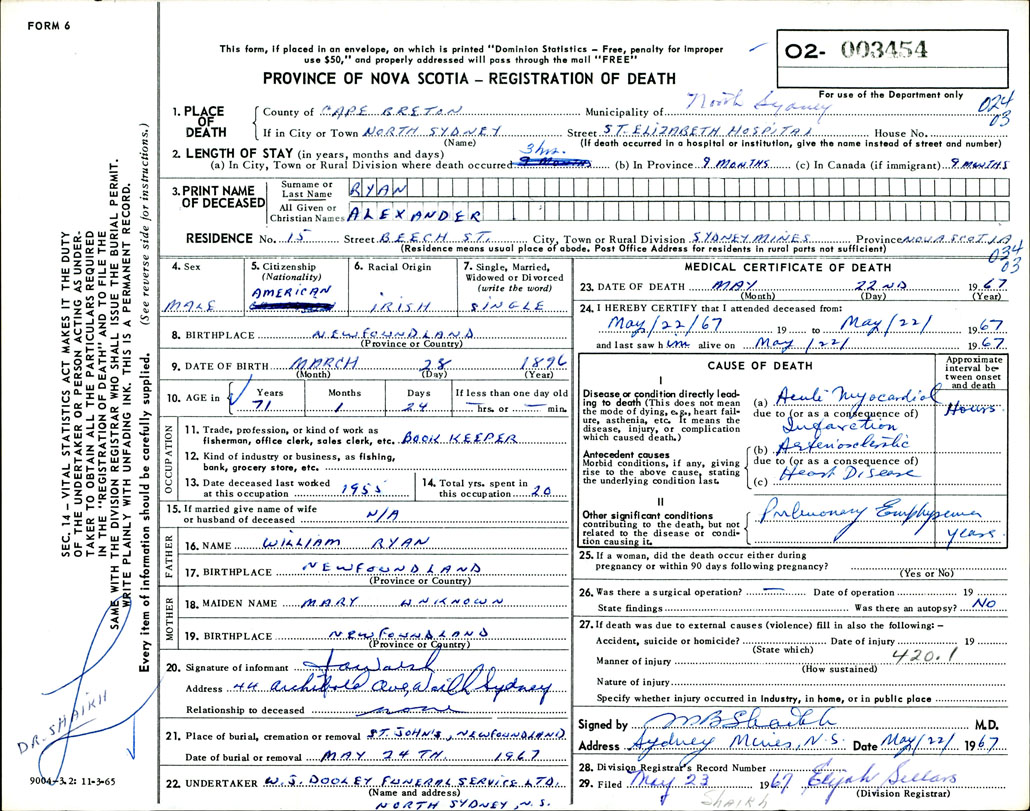 FORM 6
This form, if placed in an envelope, on which is printed "Dominion Statistics – Free, penalty for improper
use $50," and properly addressed will pass through the mail "FREE"
O2- 003454
PROVINCE OF NOVA SCOTIA – REGISTRATION OF DEATH
For use of the Department only
024
03
1. PLACE OF DEATH
County of CAPE BRETON Municipality of North Sydney
If in City or Town NORTH SYDNEY Street ST. ELIZABETH HOSPITAL House No.
(Name) (If death occurred in a hospital or institution, give the name instead of street and number)
2. LENGTH OF STAY (in years, months and days) 3 hrs.
(a) In City, Town or Rural Division where death occurred 9 MONTHS (b) In Province 9 MONTHS (c) In Canada (if immigrant) 9 MONTHS
3. PRINT NAME OF DECEASED
Surname or Last Name RYAN
All Given or Christian Names ALEXANDER
RESIDENCE No. 15 Street BEECH ST. City, Town or Rural Division SYDNEY MINES Province NOVA SCOTIA
(Residence means usual place of abode. Post Office Address for residents in rural parts not sufficient)
034
03
4. Sex
MALE
5. Citizenship
(Nationality)
AMERICAN
6. Racial Origin
IRISH
7. Single, Married,
Widowed or Divorced
(write the word)
SINGLE
8. BIRTHPLACE NEWFOUNDLAND
(Province or Country)
9. DATE OF BIRTH MARCH 28 1896
(Month) (Day) (Year)
10. AGE in Years Months Days If less than one day old
71 1 24 hrs. or min.
OCCUPATION
11. Trade, profession, or kind of work as
fisherman, office clerk, sales clerk, etc. BOOK KEEPER
12. Kind of industry or business, as fishing,
bank, grocery store, etc.
13. Date deceased last worked
at this occupation 1955
14. Total yrs. spent in
this occupation 20
15. If married give name of wife
or husband of deceased N/A
FATHER
16. NAME WILLIAM RYAN
17. BIRTHPLACE NEWFOUNDLAND
(Province or Country)
MOTHER
18. MAIDEN NAME MARY UNKNOWN
19. BIRTHPLACE NEWFOUNDLAND
(Province or Country)
20. Signature of informant
Address 44 Archibald Ave North Sydney
Relationship to deceased none
21. Place of burial, cremation or removal ST. JOHN'S, NEWFOUNDLAND
Date of burial or removal MAY 24 TH. 1967
22. UNDERTAKER W.J. DOOLEY FUNERAL SERVICE LTD.
(Name and address)
NORTH SYDNEY, N.S.
MEDICAL CERTIFICATE OF DEATH
23. DATE OF DEATH MAY 22ND 1967
(Month) (Day) (Year)
24. I HEREBY CERTIFY that I attended deceased from:
May/22/67 19 to May/22/ 1967
and last saw him alive on May/22/ 1967.
CAUSE OF DEATH
Approximate
interval be-
tween onset
and death
I
Disease or condition directly lead-
ing to death (This does not mean
the mode of dying, e.g., heart fail-
ure, asthenia, etc. It means the
disease, injury, or complication
which caused death.)
(a) Acute Myocardial Hours
due to (or as a consequence of)
Infarction
Antecedent causes
Morbid conditions, if any, giving
rise to the above cause, stating
the underlying condition last.
(b) Arteriosclerotic
due to (or as a consequence of)
Heart Disease
(c)
II
Other significant conditions
contributing to the death, but not
related to the disease or condi-
tion causing it.
Pulmonary Emphysema
years
25. If a woman, did the death occur either during
pregnancy or within 90 days following pregnancy?
(Yes or No)
26. Was there a surgical operation? Date of operation 19
State findings Was there an autopsy? NO
27. If death was due to external causes (violence) fill in also the following: –
Accident, suicide or homicide? Date of injury 19
(State which)
420.1
Manner of injury
(How sustained)
Nature of injury
Specify whether injury occurred in industry, in home, or in public place
Signed by M B Shaikh M.D.
Address Sydney Mines, N.S. Date May/22/ 1967
28. Division Registrar's Record Number
29. Filed May 23 1967 Elijah Sellars
(Division Registrar)
Shaikh
SEC. 14 – VITAL STATISTICS ACT MAKES IT THE DUTY
OF THE UNDERTAKER OR PERSON ACTING AS UNDER-
TAKER TO OBTAIN ALL THE PARTICULARS REQUIRED
IN THE "REGISTRATION OF DEATH" AND TO FILE THE
SAME WITH THE DIVISION REGISTRAR WHO SHALL ISSUE THE BURIAL PERMIT.
WRITE PLAINLY WITH UNFADING INK. THIS IS A PERMANENT RECORD.
Every item of information should be carefully supplied. (See reverse side for instructions.)
DR. SHAIKH
9004-3.2: 11-3-65